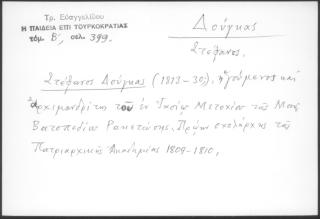 Τρ. Εὐαγγελίδου
Η ΠΑΙΔΕΙΑ ΕΠΙ ΤΟΥΡΚΟΚΡΑΤΙΑΣ
τόμ. Β', σελ. 399.
Δούγκας
Στέφανος.
Στέφανος Δούγκας (1813-30), ἡγούμενος καὶ
ἀρχιμανδρίτης τοῦ ἐν Ἰασίῳ Μετοχίου τῆς Μονῆς
Βατοπεδίου Ρακετώσης. Πρώην σχολάρχης τῆς
Πατριαρχικῆς Ἀκαδημίας 1809-1810.